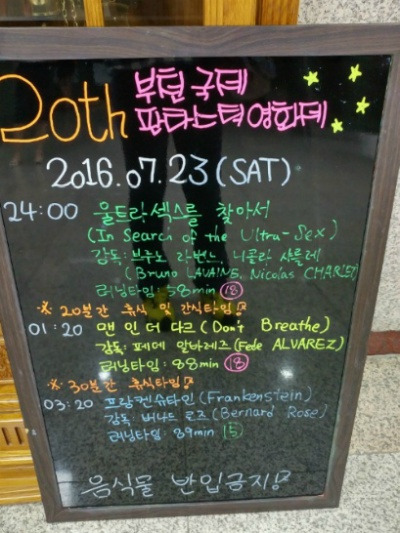 20th 부천 국제
판타스틱영화제
2016.07.23(SAT)
24:00 울트라섹스를 찾아서
(In Search of the Ultra-Sex)
감독: 브루노 라벤느, 니콜라 샤를레
(Bruno LAVAINE, Nicolas CHARLET)
러닝타임: 58min 18
※ 20분간 휴식 및 간식타임
01:20 맨 인 더 다크 (Don't Breathe)
감독: 페데 알바레즈 (Fede ALVAREZ)
러닝타임: 88min 18
※ 30분간 휴식타임
03:20 프랑켄슈타인 (Frankenstein)
감독: 버나드 로즈 (Bernard Rose)
러닝타임: 89min 15
음식물 반입금지!